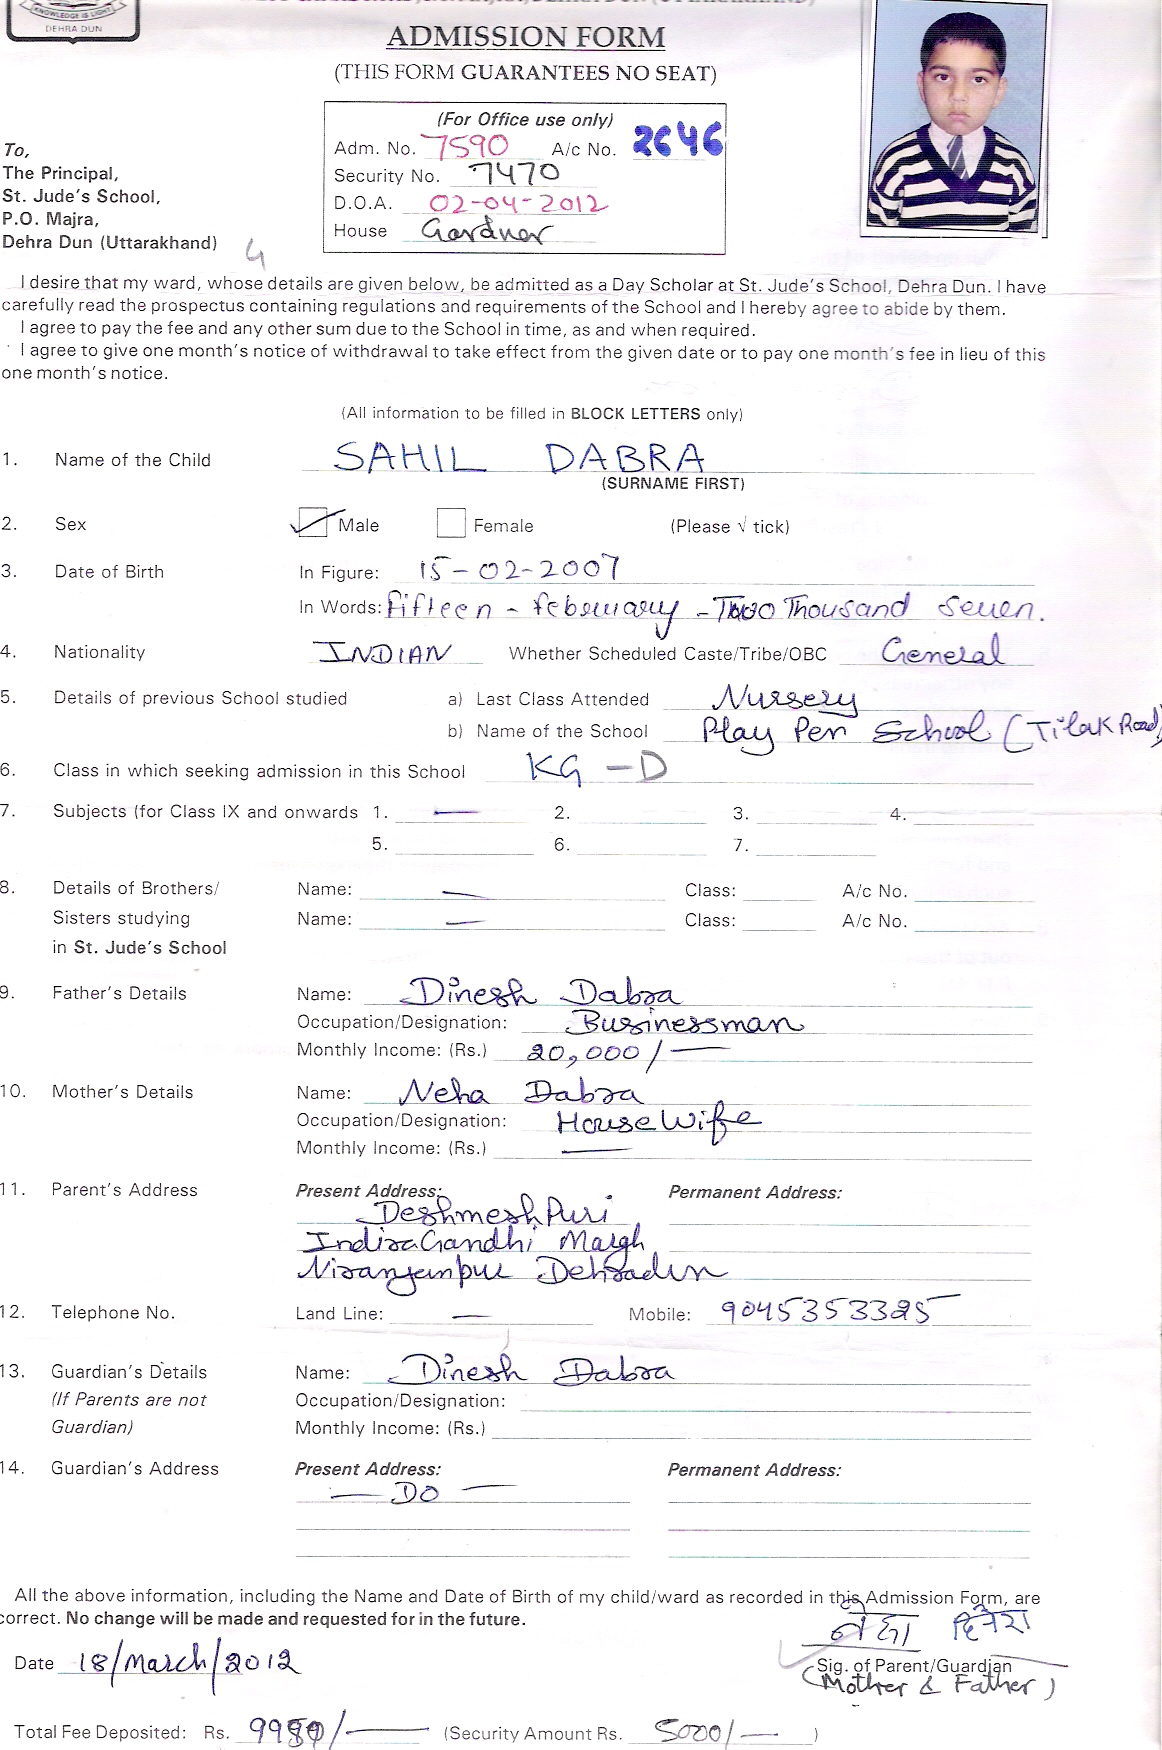 KNOWLEDGE IS LIGHT
DEHRA DUN
ADMISSION FORM
(THIS FORM GUARANTEES NO SEAT)
(For Office use only)
Adm. No. 7590 A/c No. 2646
Security No. 7470
D.O.A. 02-04-2012
House Gardner
To,
The Principal,
St. Jude's School,
P.O. Majra,
Dehra Dun (Uttarakhand)
I desire that my ward, whose details are given below, be admitted as a Day Scholar at St. Jude's School, Dehra Dun. I have
carefully read the prospectus containing regulations and requirements of the School and I hereby agree to abide by them.
I agree to pay the fee and any other sum due to the School in time, as and when required.
I agree to give one month's notice of withdrawal to take effect from the given date or to pay one month's fee in lieu of this
one month's notice.
(All information to be filled in BLOCK LETTERS only)
1. Name of the Child SAHIL DABRA
(SURNAME FIRST)
2. Sex Male Female (Please √ tick)
3. Date of Birth In Figure: 15-02-2007
In Words: Fifteen - february - Two Thousand Seven.
4. Nationality INDIAN Whether Scheduled Caste/Tribe/OBC General
5. Details of previous School studied a) Last Class Attended Nursery
b) Name of the School Play Pen School (Tilak Road)
6. Class in which seeking admission in this School KG - D
7. Subjects (for Class IX and onwards 1. — 2. 3. 4.
5. 6. 7.
8. Details of Brothers/ Name: — Class: A/c No.
Sisters studying Name: — Class: A/c No.
in St. Jude's School
9. Father's Details Name: Dinesh Dabra
Occupation/Designation: Businessman
Monthly Income: (Rs.) 20,000/—
10. Mother's Details Name: Neha Dabra
Occupation/Designation: House Wife
Monthly Income: (Rs.) —
11. Parent's Address Present Address: Permanent Address:
Deshmesh Puri
Indira Gandhi Margh
Niranjanpur Dehradun
12. Telephone No. Land Line: — Mobile: 9045353325
13. Guardian's Details Name: Dinesh Dabra
(If Parents are not Occupation/Designation:
Guardian) Monthly Income: (Rs.)
14. Guardian's Address Present Address: Permanent Address:
— DO —
All the above information, including the Name and Date of Birth of my child/ward as recorded in this Admission Form, are
correct. No change will be made and requested for in the future.
नेहा दिनेश
Date 18/March/2012
Sig. of Parent/Guardian
(Mother & Father)
Total Fee Deposited: Rs. /— (Security Amount Rs. 5000/— )